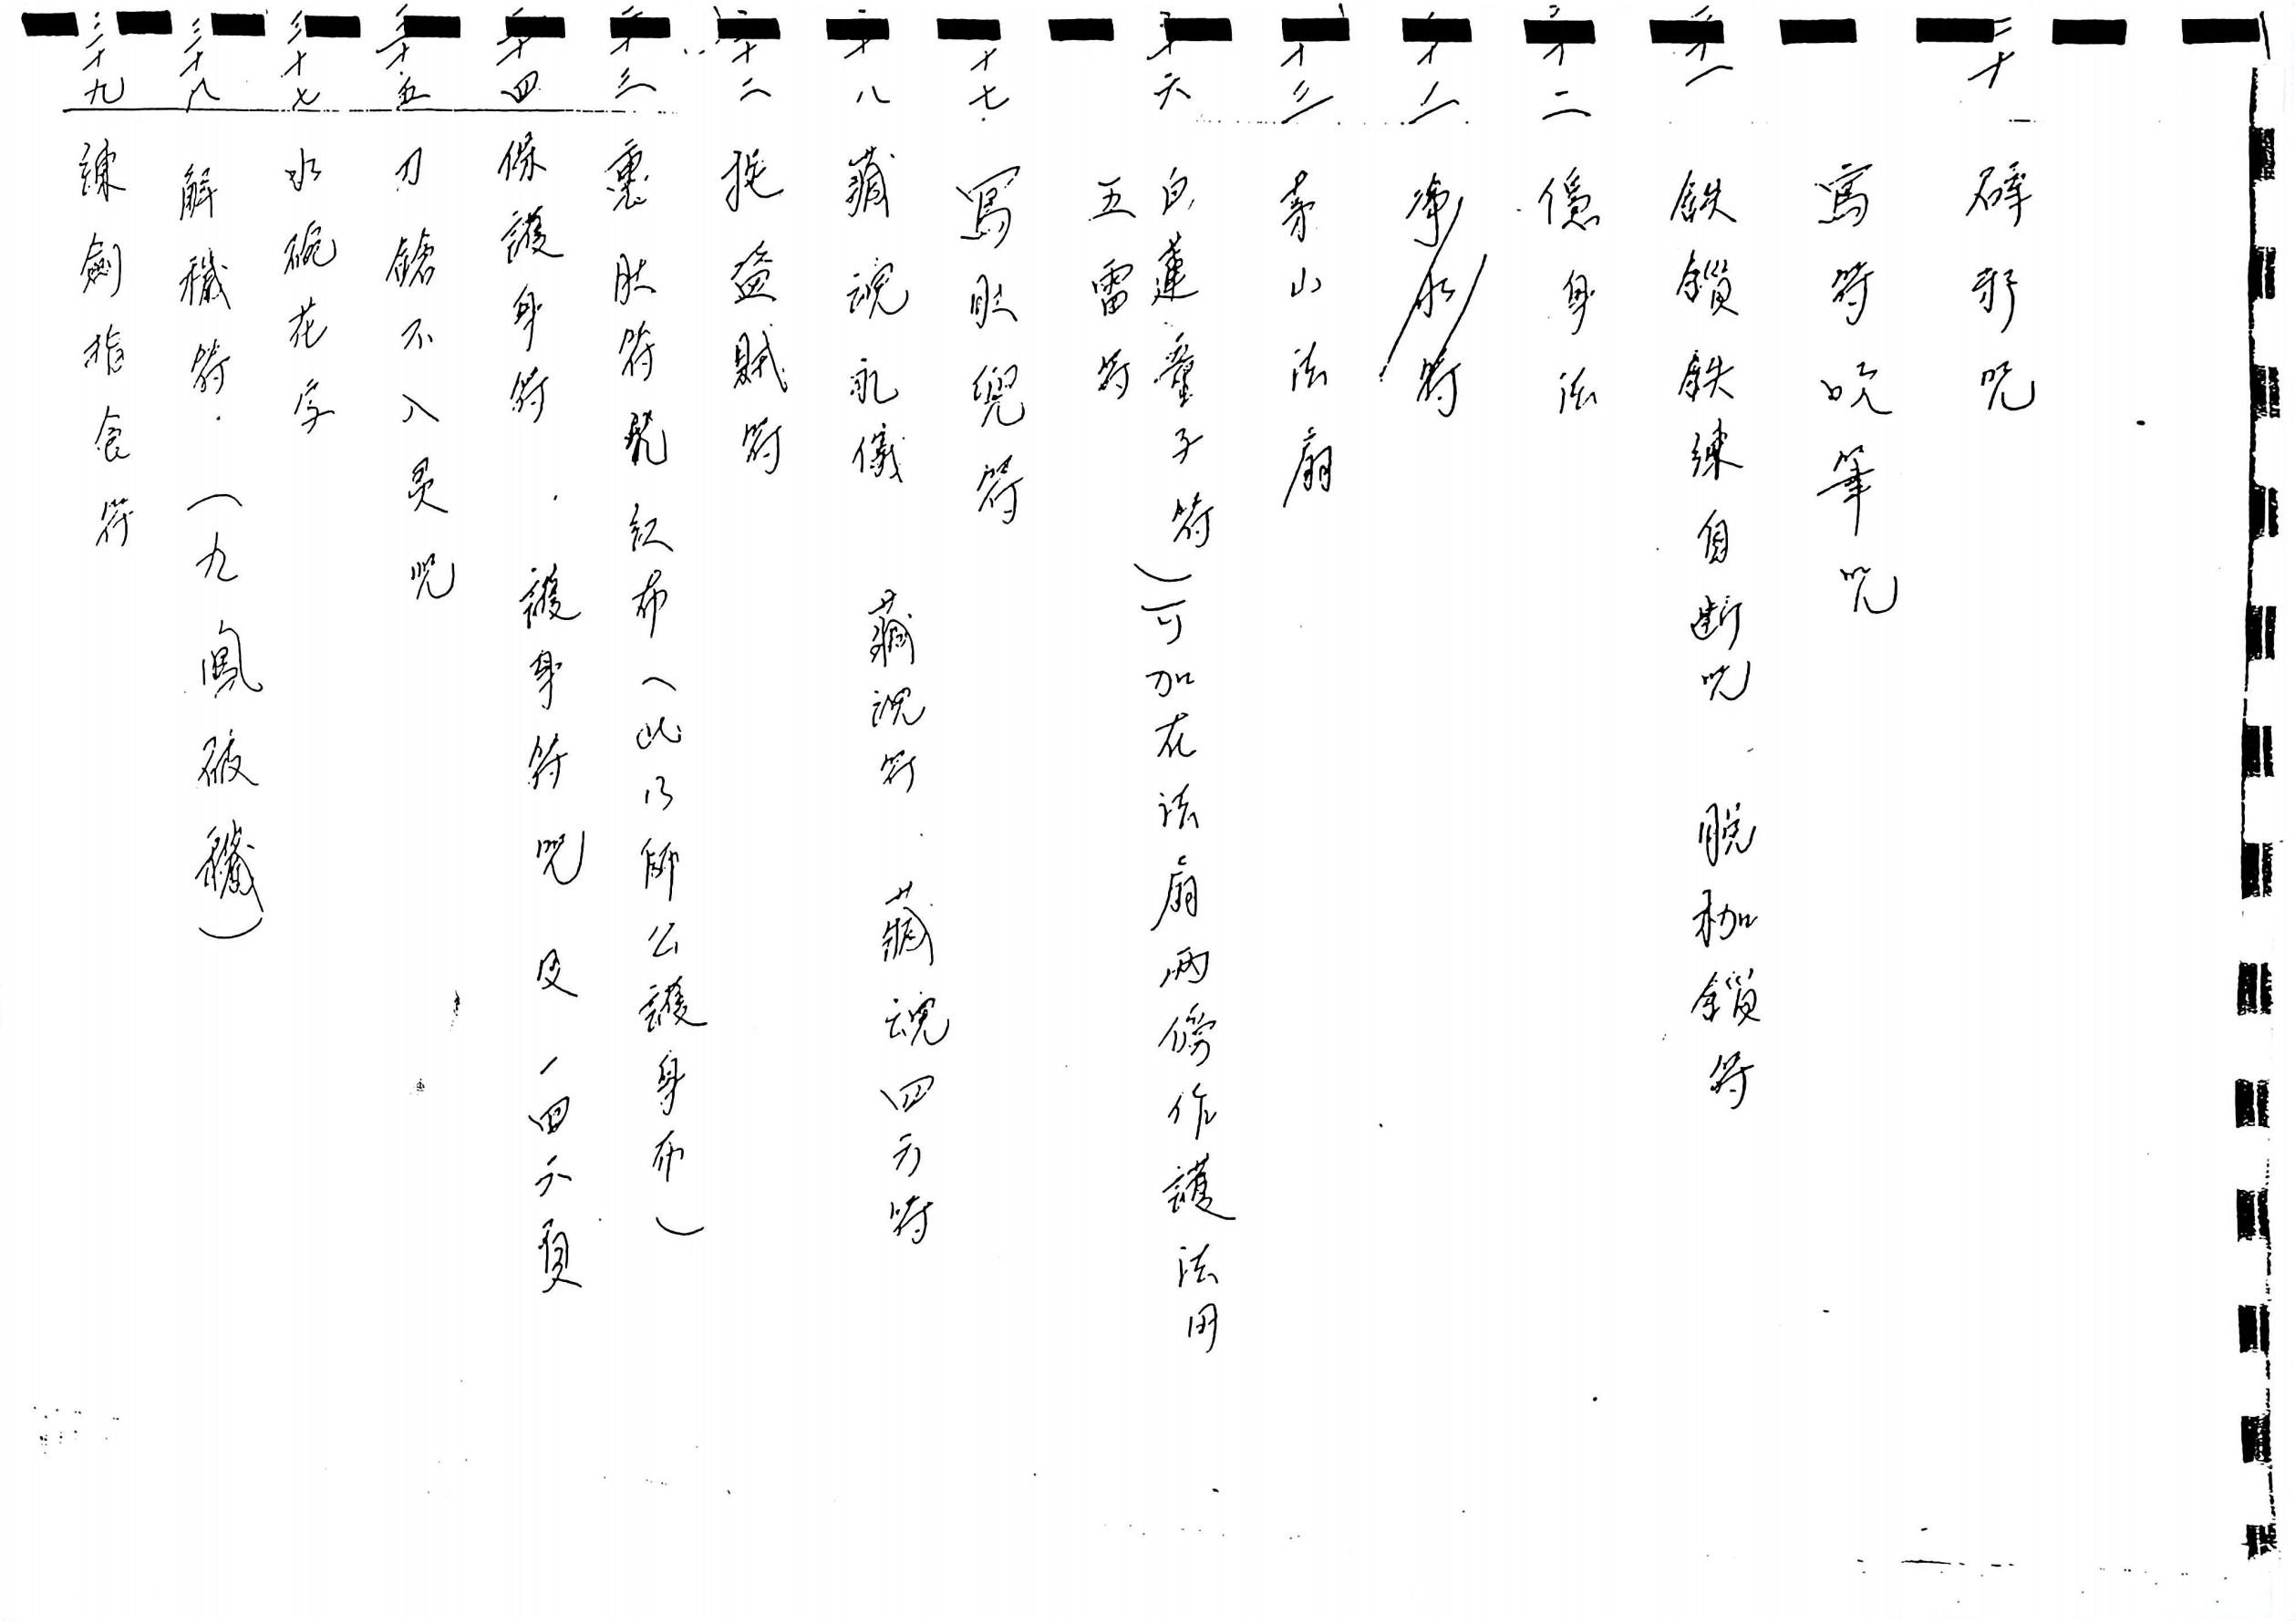 二十 辟邪咒
寫符吹筆咒
鉄鎖鉄練自断咒 脫枷鎖符
二十二 隱身法
淨水符
十三 茅山法扇
十六 白蓮童子符)可加在法扇兩傍作護法用
五雷符
十七 寫肚兜符
十八 藏魂儀 藏魂符 藏魂四方符
十二 捉盜賊符
裹肚符 紅布(此乃師公護身布)
十四 保護身符 護身符咒 及一四六頁
三十五 刀鎗不入灵咒
三十七 水碗花字
三十八 解穢符(九鳳破穢)
三十九 練劍指食符